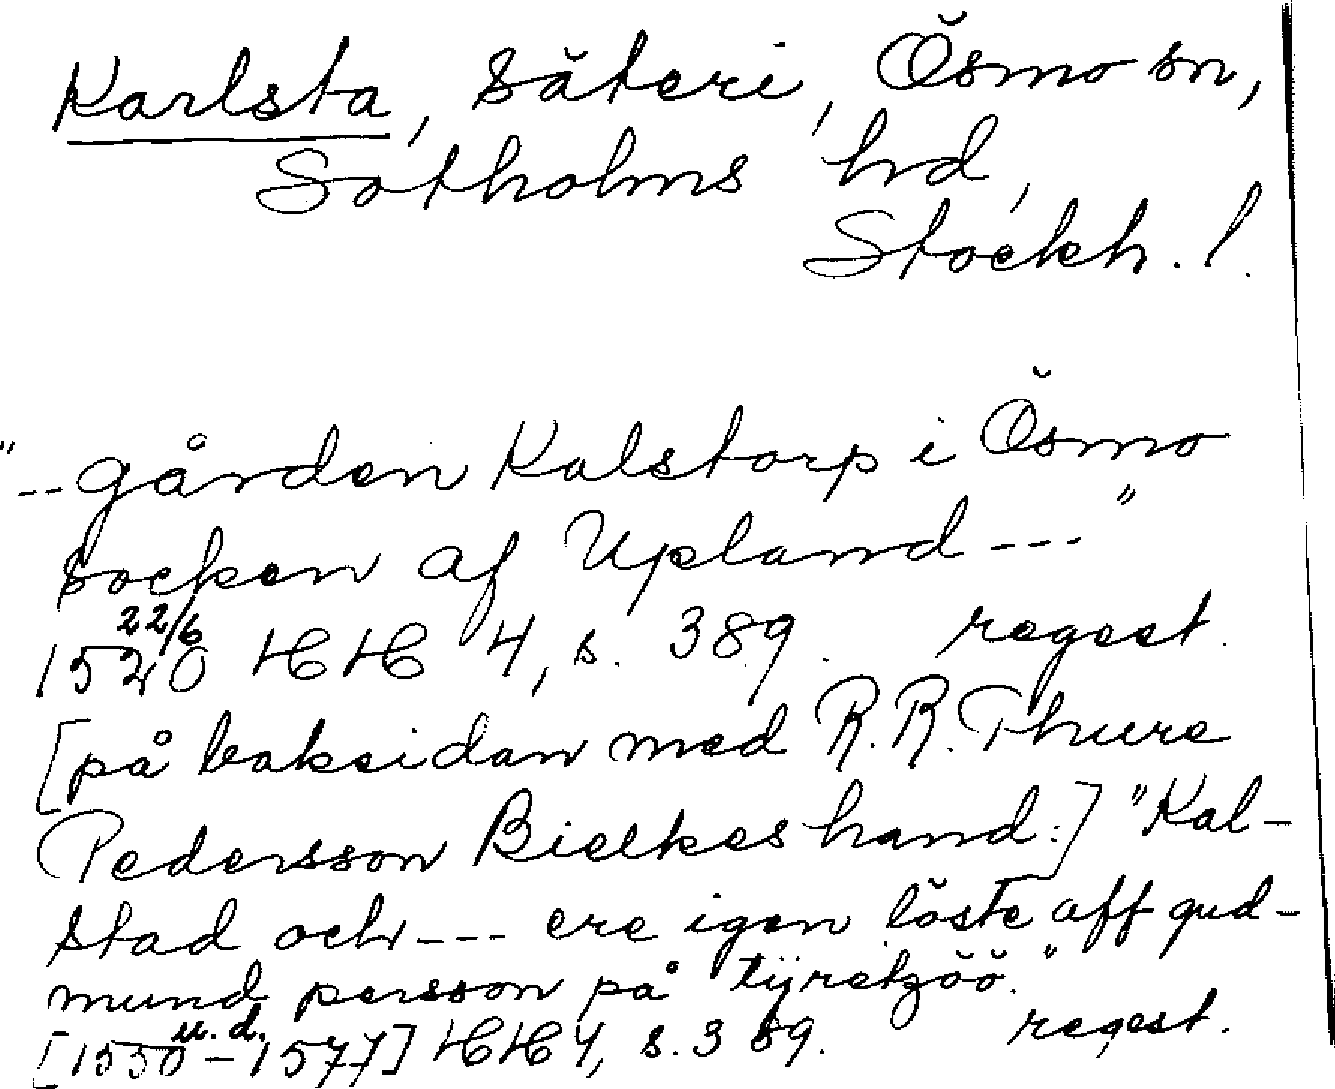 Karlsta, säteri, Ösmo sn,
Sotholms hd,
Stockh. l.
"--gården Kalstorp i Ösmo
socken af Upland---"
22/6
1520 HH 4, s. 389. regest.
[på baksidan med R.R. Thure
Pedersson Bielkes hand:] "Kal-
stad och --- ere igen löste aff gud-
mund persson på tÿretzöö."
u.d.
[1550-1577] HH 4, s. 389. regest.